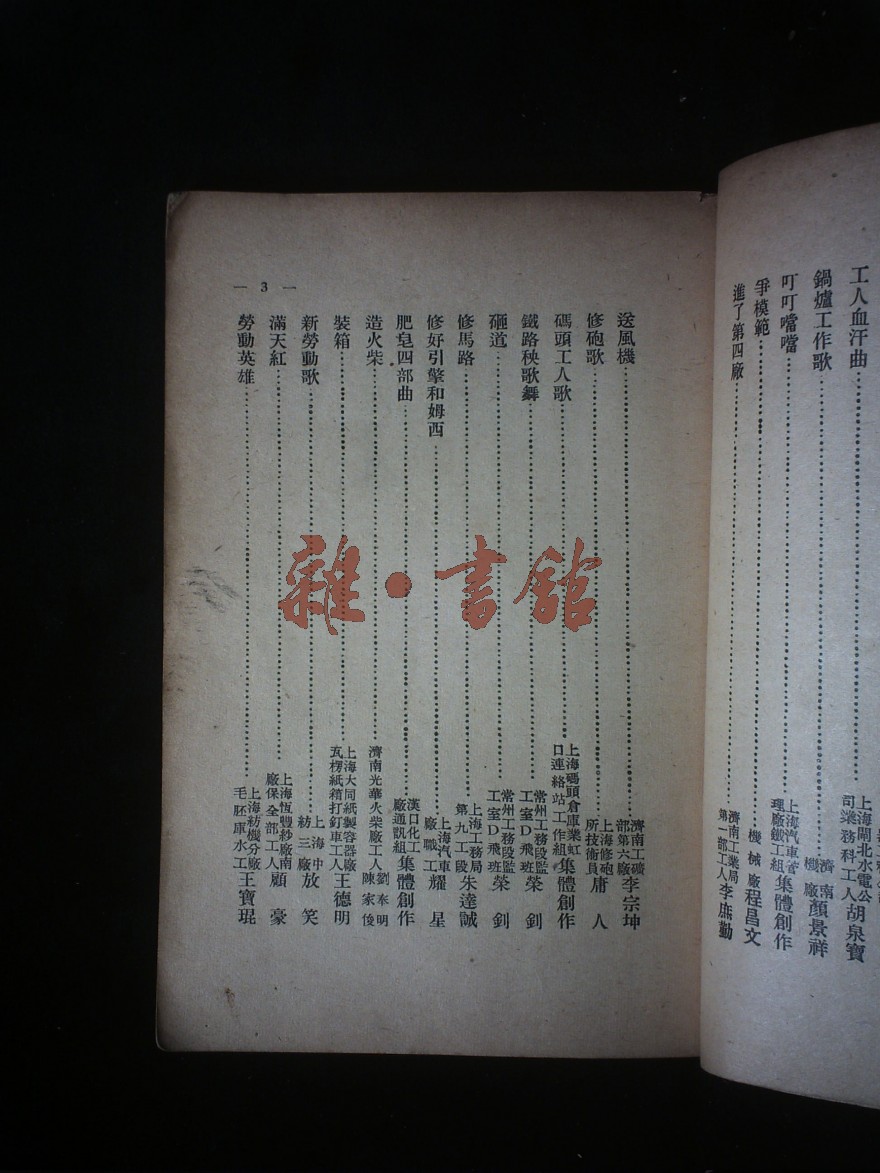 工人血汗曲……上海閘北水電公司業務科工人胡泉寶
鍋爐工作歌……濟南機廠顏景祥
叮叮噹噹……上海汽車管理廠鐵工組集體創作
爭模範……機械廠程昌文
進了第四廠……濟南工業局第一部工人李庶勤
送風機……濟南工礦部第六廠李宗坤
修砲歌……上海修砲所技術員庸人
碼頭工人歌……上海碼頭倉庫業虹口連絡站工作組集體創作
鐵路秧歌舞……常州工務段監工室D飛班榮釗
砸道……常州工務段監工室D飛班榮釗
修馬路……上海工務局第九工段朱達誠
修好引擎和姆西……上海汽車廠職工耀星
肥皂四部曲……漢口化工廠通訊組集體創作
造火柴……濟南光華火柴廠工人劉奉明陳家俊
裝箱……上海大同紙製容器廠瓦楞紙箱打釘車工人王德明
新勞動歌……上海中紡三廠放笑
滿天紅……上海恆豐紗廠南廠保全部工人顧豪
勞動英雄……上海紡機分廠毛胚庫水工王寶琨
— 3 —
雜·書館